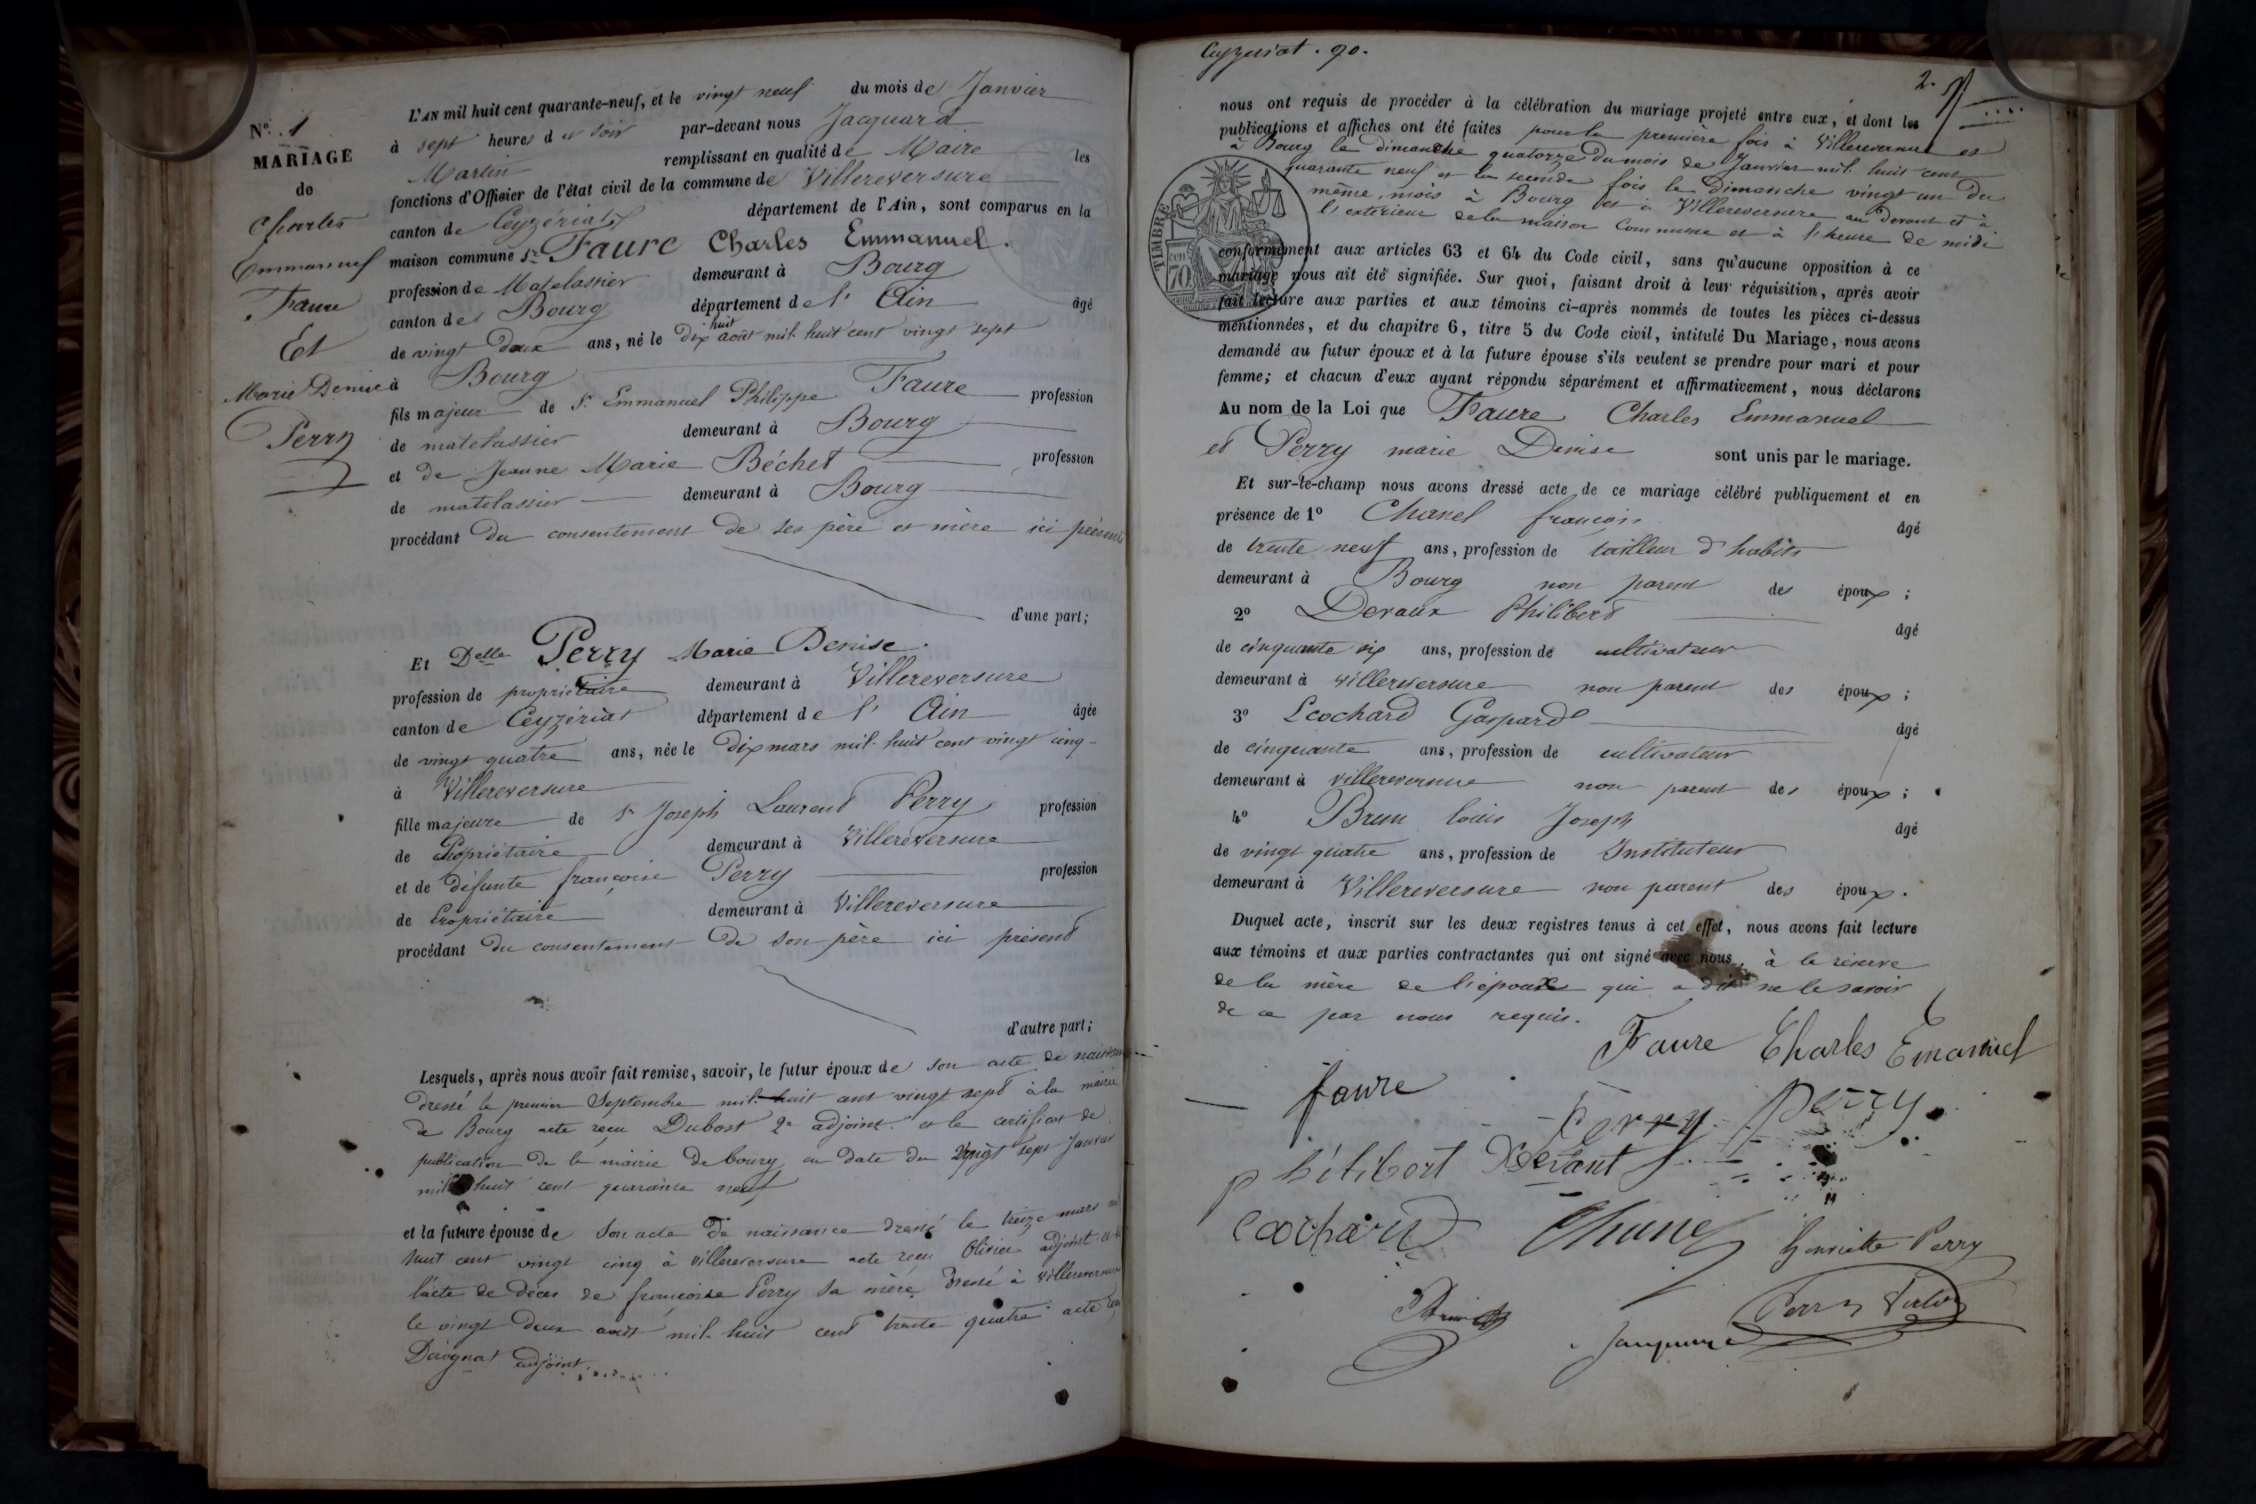 N° 1
MARIAGE
de
Charles
Emmanuel
Faure
Et
Marie Denise
Perry
L'AN mil huit cent quarante-neuf, et le vingt neuf du mois de Janvier
à sept heures du soir par-devant nous Jacquard
Martin remplissant en qualité de Maire les
fonctions d'Officier de l'état civil de la commune de Villereversure
canton de Ceyzériat département de l'Ain, sont comparus en la
maison commune Sr Faure Charles Emmanuel.
profession de Matelassier demeurant à Bourg
canton de Bourg département de l' Ain âgé
de vingt deux ans, né le dix huit août mil huit cent vingt sept
à Bourg
fils majeur de Sr Emmanuel Philippe Faure profession
de matelassier demeurant à Bourg
et de Jeanne Marie Béchet profession
de matelassier demeurant à Bourg
procédant du consentement de ses père et mère ici présents
d'une part;
Et Delle Perry Marie Denise.
profession de propriétaire demeurant à Villereversure
canton de Ceyzériat département de l' Ain âgée
de vingt quatre ans, née le dix mars mil huit cent vingt cinq
à Villereversure
fille majeure de Sr Joseph Laurent Perry profession
de Propriétaire demeurant à Villereversure
et de défunte françoise Perry profession
de Propriétaire demeurant à Villereversure
procédant du consentement de son père ici présent
d'autre part;
Lesquels, après nous avoir fait remise, savoir, le futur époux de son acte de naissance
dressé le premier Septembre mil huit cent vingt sept à la mairie
de Bourg acte reçu Dubost 2e adjoint et le certificat de
publication de la mairie de bourg en date du vingt sept Janvier
mil huit cent quarante neuf
et la future épouse de son acte de naissance dressé le treize mars mil
huit cent vingt cinq à villereversure acte reçu Olivier adjoint et de
l'acte de décès de françoise Perry sa mère dressé à villereversure
le vingt deux août mil huit cent trente quatre acte reçu
adjoint
Ceyzeriat . 90.
2.
nous ont requis de procéder à la célébration du mariage projeté entre eux, et dont les
publications et affiches ont été faites pour la première fois à Villereversure et
à Bourg le dimanche quatorze du mois de Janvier mil huit cent
quarante neuf et la seconde fois le dimanche vingt un du
même mois à Bourg et à Villereversure au devant et à
l'extérieur de la maison Commune et à l'heure de midi
TIMBRE
70
conformément aux articles 63 et 64 du Code civil, sans qu'aucune opposition à ce
mariage nous ait été signifiée. Sur quoi, faisant droit à leur réquisition, après avoir
fait lecture aux parties et aux témoins ci-après nommés de toutes les pièces ci-dessus
mentionnées, et du chapitre 6, titre 5 du Code civil, intitulé Du Mariage, nous avons
demandé au futur époux et à la future épouse s'ils veulent se prendre pour mari et pour
femme; et chacun d'eux ayant répondu séparément et affirmativement, nous déclarons
Au nom de la Loi que Faure Charles Emmanuel
et Perry marie Denise sont unis par le mariage.
Et sur-le-champ nous avons dressé acte de ce mariage célébré publiquement et en
présence de 1° Chanel françois âgé
de trente neuf ans, profession de tailleur d'habits
demeurant à Bourg non parent des époux ;
2° Devaux Philibert âgé
de cinquante six ans, profession de cultivateur
demeurant à villereversure non parent des époux ;
3° Ecochard Gaspard âgé
de cinquante ans, profession de cultivateur
demeurant à villereversure non parent des époux ;
4° Brun louis Joseph âgé
de vingt quatre ans, profession de Instituteur
demeurant à Villereversure non parent des époux.
Duquel acte, inscrit sur les deux registres tenus à cet effet, nous avons fait lecture
aux témoins et aux parties contractantes qui ont signé avec nous, à la réserve
de la mère de l'époux qui a dit ne le savoir
de ce par nous requis.
Faure Charles Emanuel
faure
Perry Perry
philibert Devant
Cochard Chanel Henriette Perry
Brun Perry
Jacquard